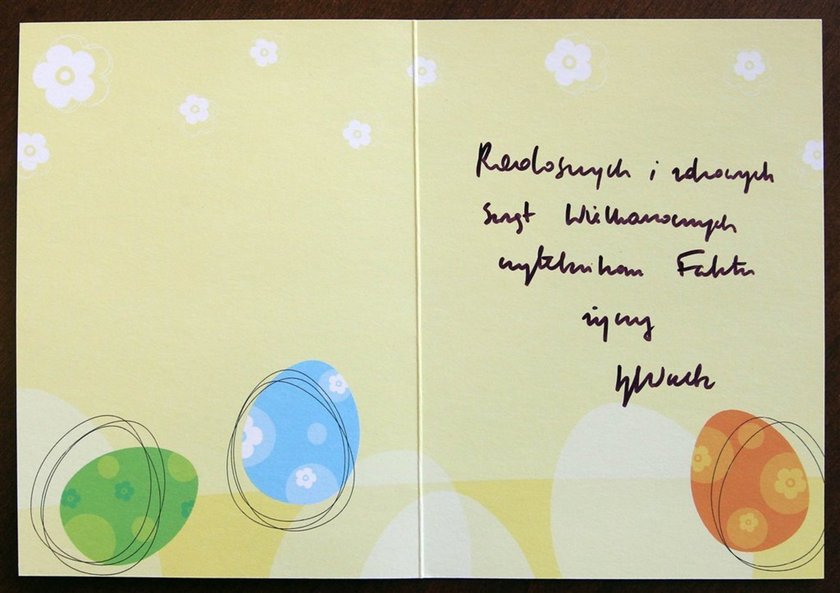 Radosnych i zdrowych
Świąt Wielkanocnych
czytelnikom Faktu
życzy